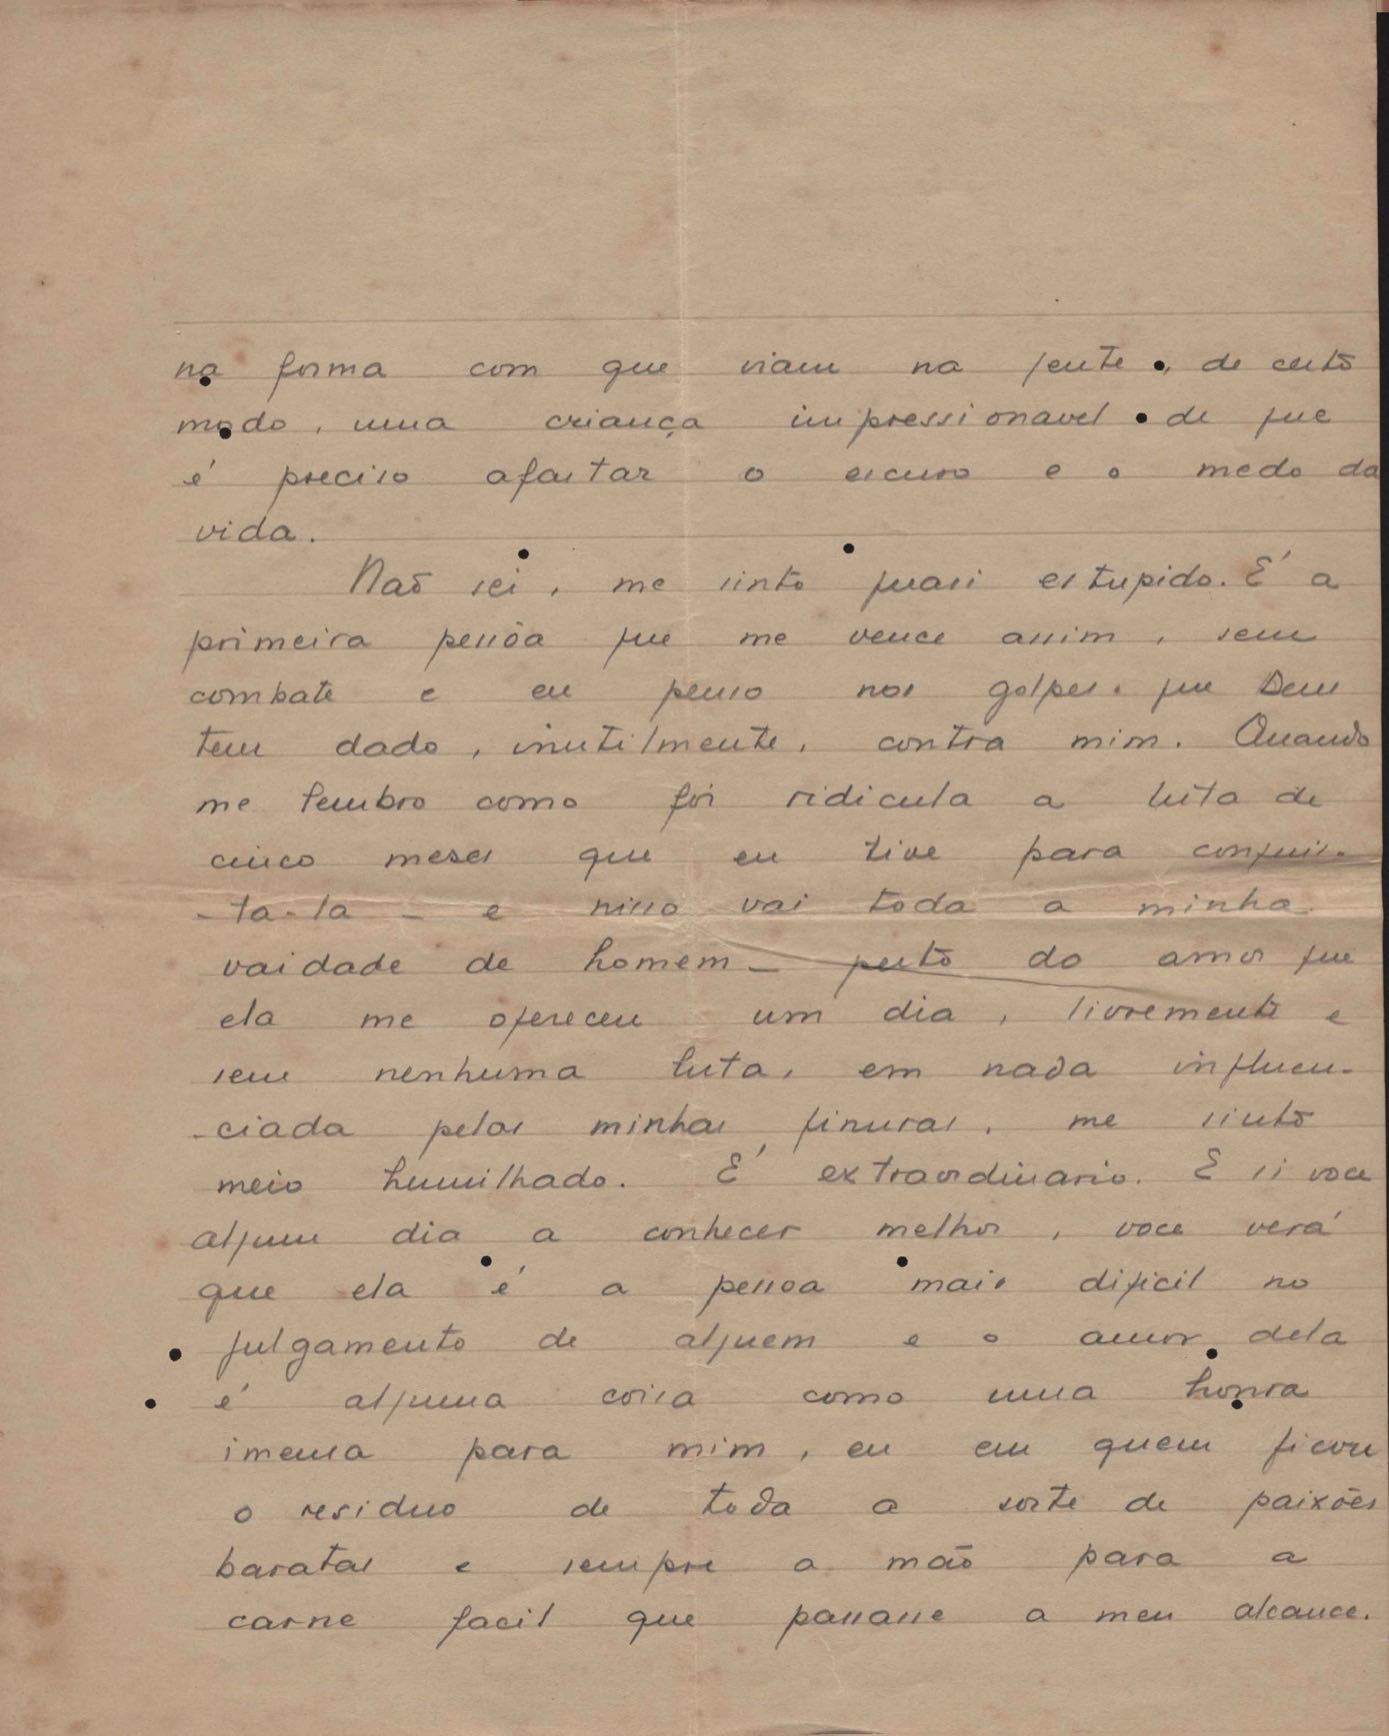 na forma com que viam na gente, de certo
modo, uma criança impressionavel de que
é preciso afastar o escuro e o medo da
vida.
Não sei, me sinto quasi estupido. É a
primeira pessôa que me vence assim, sem
combate e eu penso nos golpes que Deus
tem dado, inutilmente, contra mim. Quando
me lembro como foi ridicula a luta de
cinco meses que eu tive para conquis-
-ta-la - e nisso vai toda a minha
vaidade de homem - perto do amor que
ela me ofereceu um dia, livremente e
sem nenhuma luta, em nada influen-
-ciada pelas minhas finuras, me sinto
meio humilhado. É extraordinario. E si voce
algum dia a conhecer melhor, voce verá
que ela é a pessoa mais dificil no
julgamento de alguem e o amor dela
é alguma coisa como uma honra
imensa para mim, eu em quem ficou
o residuo de toda a sorte de paixões
baratas e sempre a mão para a
carne facil que passasse a meu alcance.